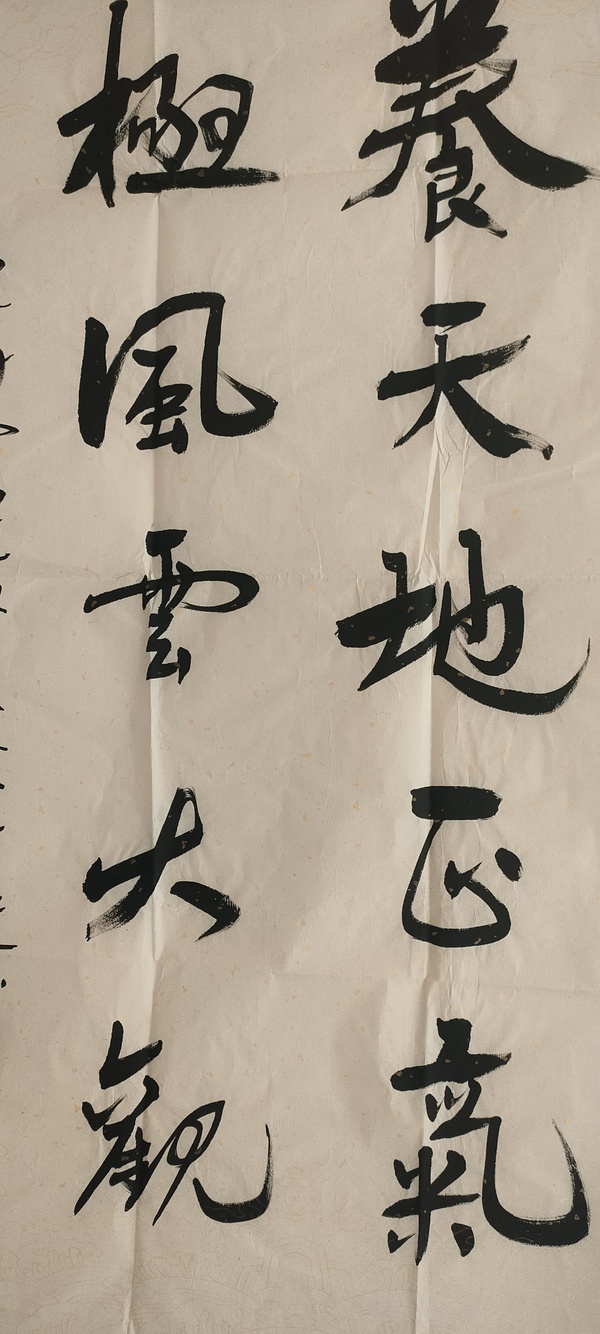 養天地正氣
極風雲大觀